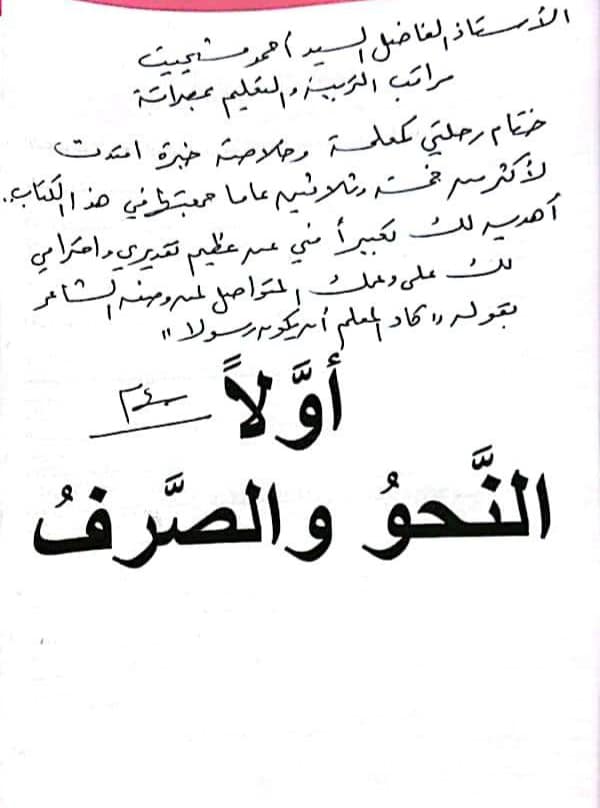 الأستاذ الفاضل السيد أحمد
مراتب التربية والتعليم بمصراتة
ختام رحلتي كمعلمة وخلاصة خبرة امتدت
لأكثر من خمسة وثلاثين عاما جمعتها في هذا الكتاب.
أهديه لك تعبيراً مني عن عظيم تقديري واحترامي
لك على دعمك المتواصل لمن وصفه الشاعر
بقوله "كاد المعلم أن يكون رسولا"
أوَّلاً
النَّحوُ والصَّرفُ